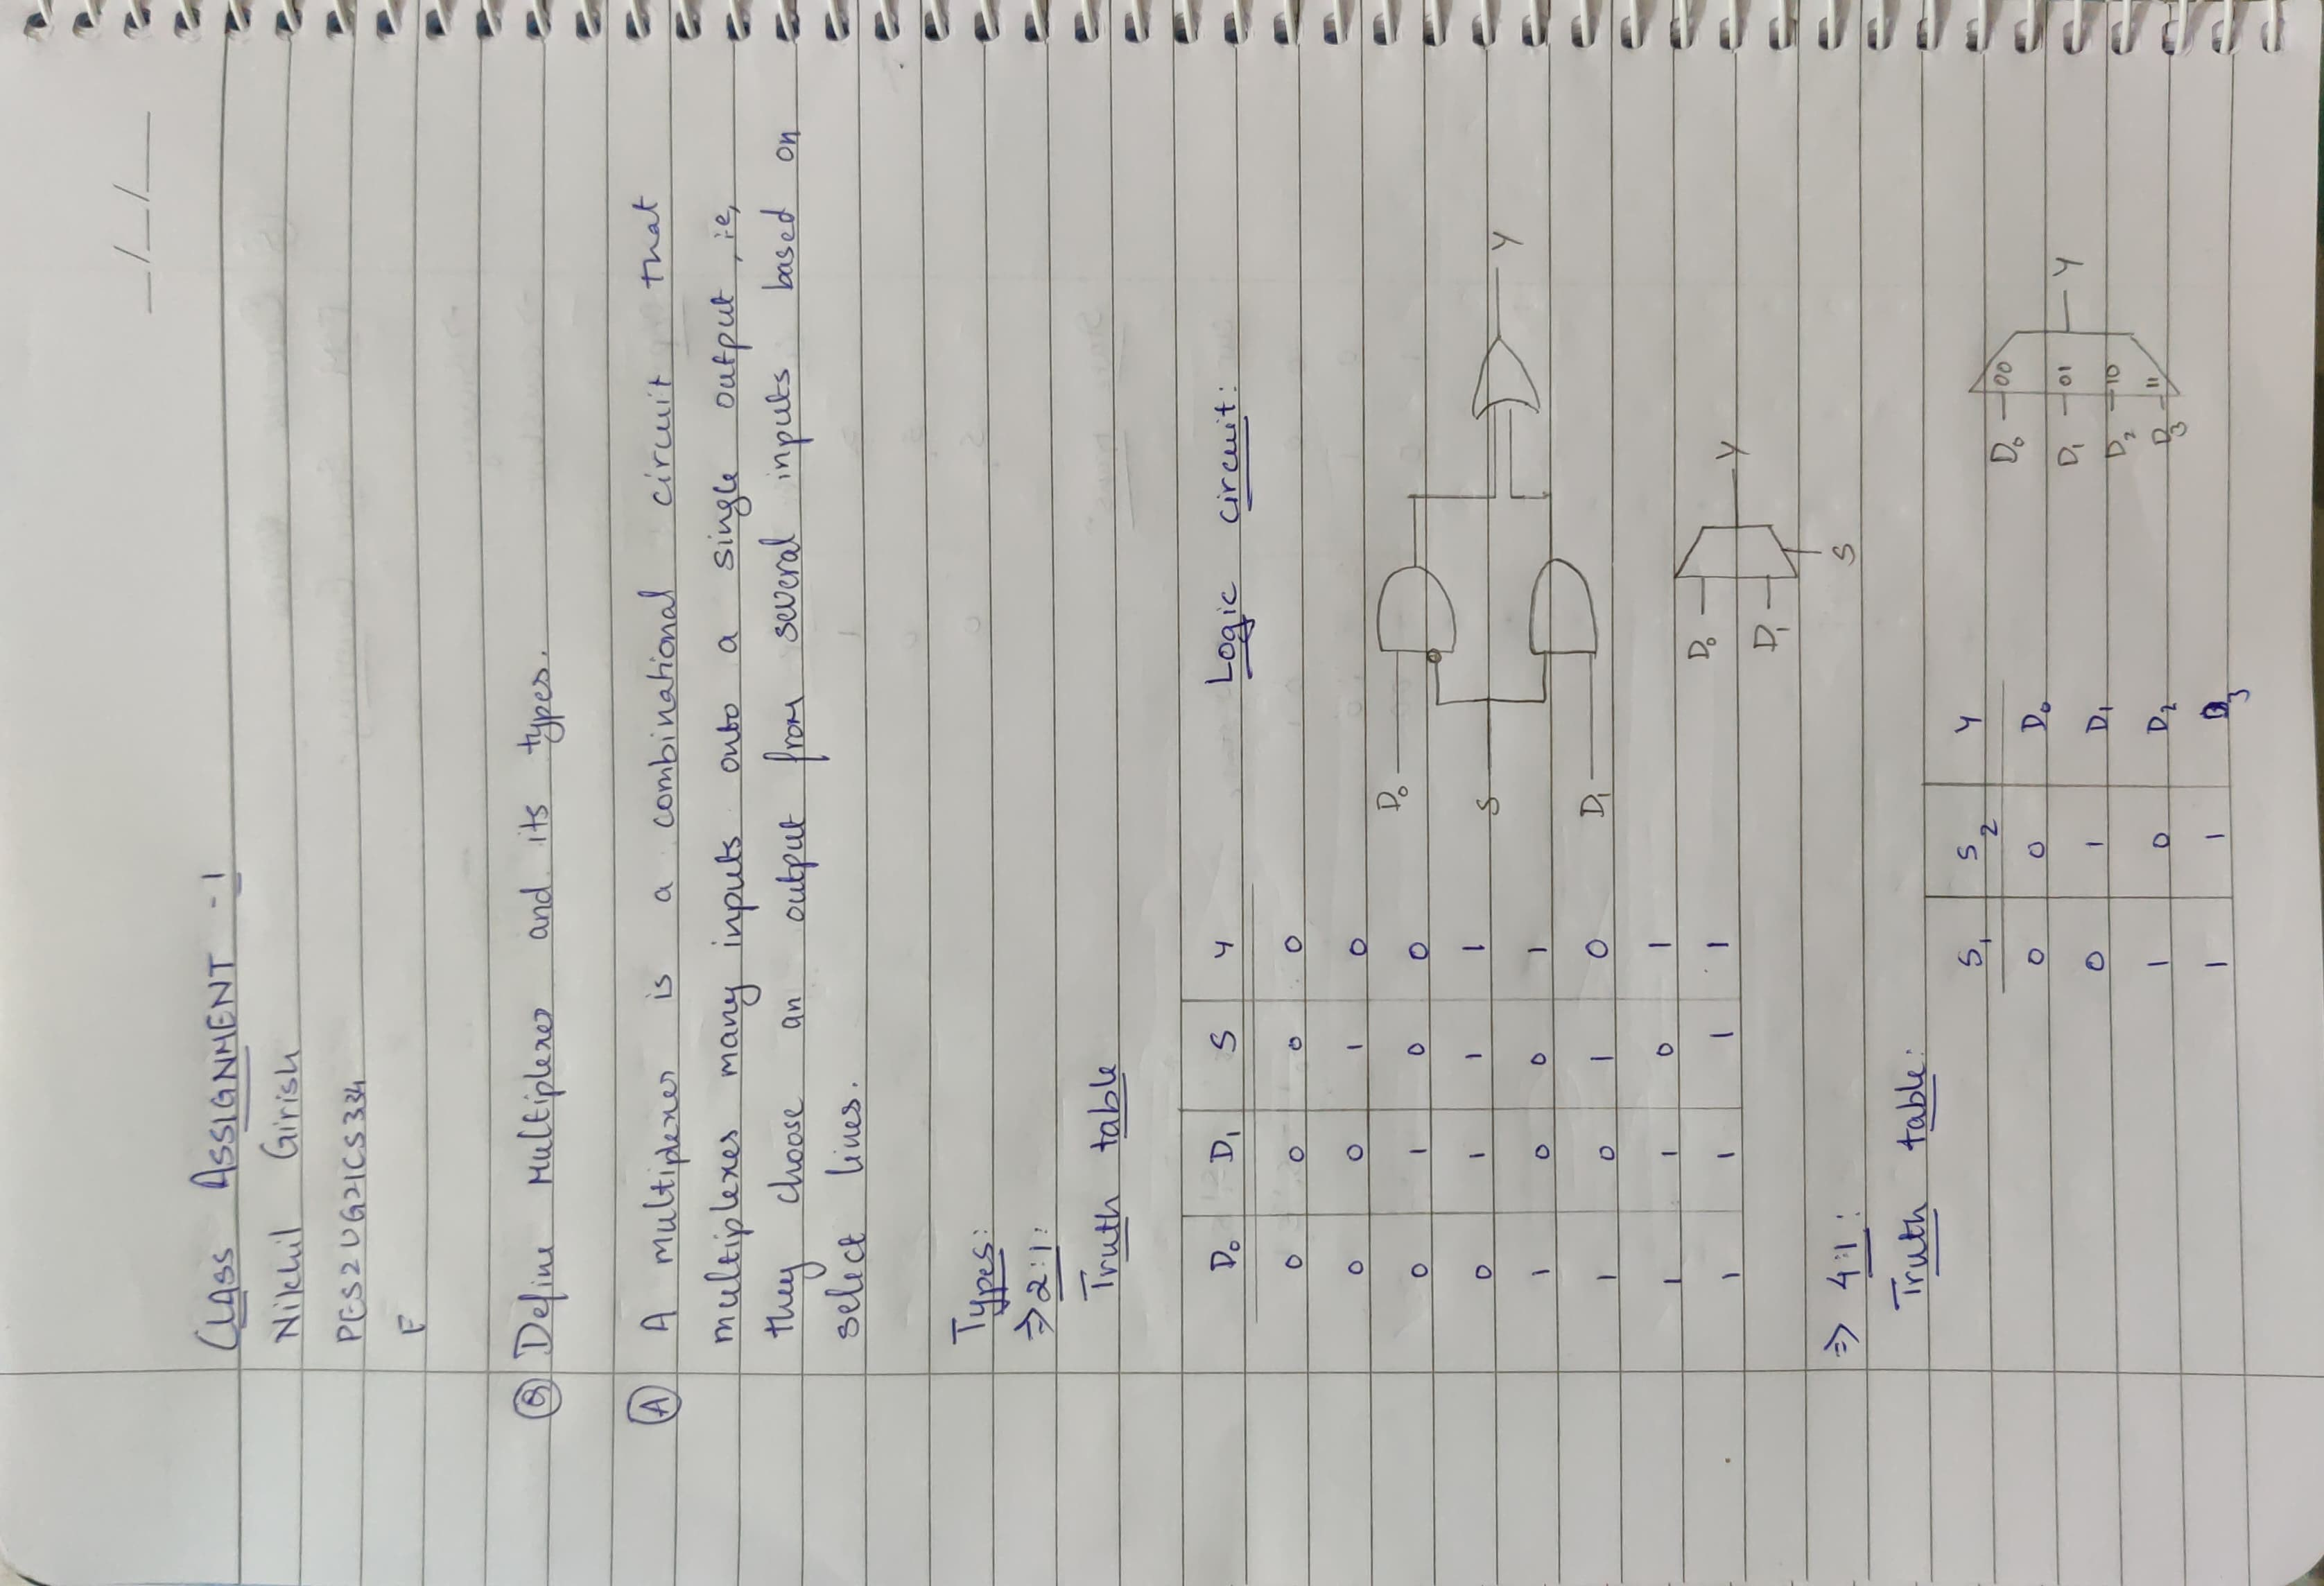 _/_/_
Class ASSIGNMENT -1
Nikhil Girish
PES2UG21CS334
F
Q Define Multiplexer and its types.
A A multiplexer is a combinational circuit that
multiplexes many inputs onto a single output, ie,
they choose an output from several inputs based on
select lines.
Types:
⇒ 2:1:
Truth table
D₀ D₁ S Y Logic circuit:
0 0 0 0
0 0 1 0
0 1 0 0
0 1 1 1
1 0 0 1
1 0 1 0
1 1 0 1
1 1 1 1
D₀
S Y
D₁
D₀
Y
D₁
S
⇒ 4:1:
Truth table:
S₁ S₂ Y
0 0 D₀
0 1 D₁
1 0 D₂
1 1 D₃
D₀ 00
D₁ 01 Y
D₂ 10
D₃ 11